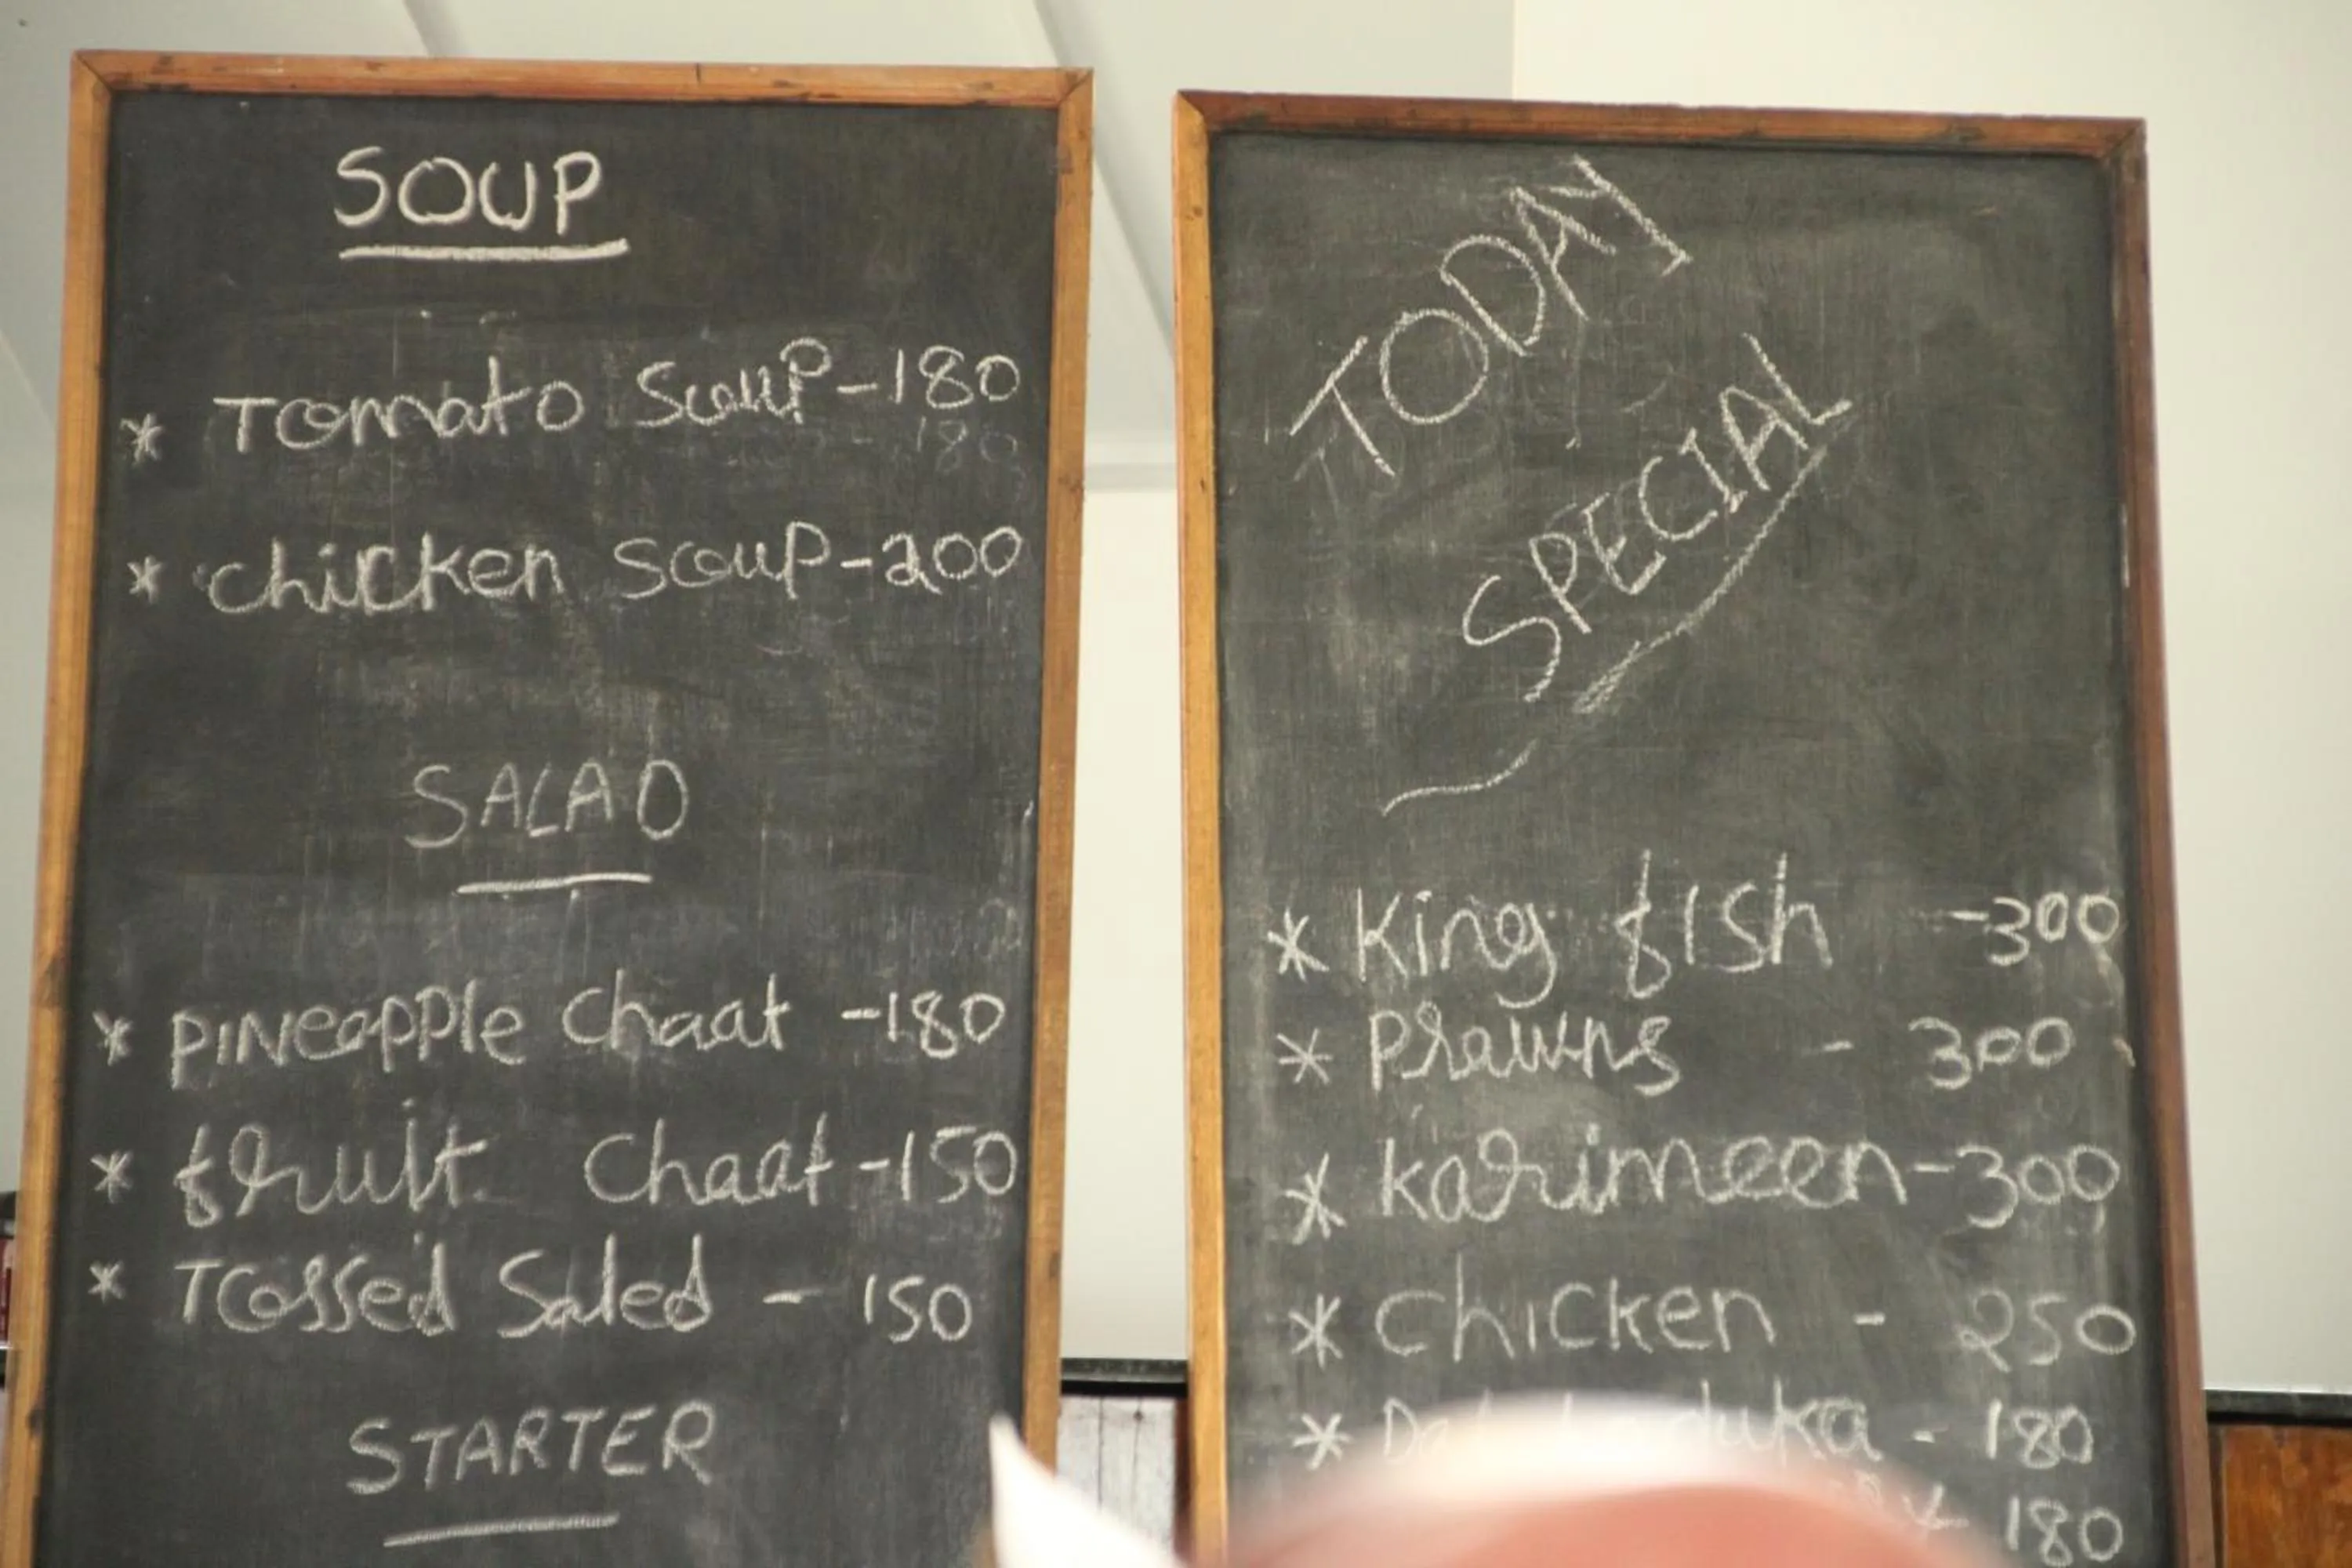 SOUP
* Tomato Soup - 180
180
* chicken soup - 200
SALAD
* PINeapple Chaat - 180
* fruit Chaat - 150
* Tossed Saled - 150
STARTER
TODAY
SPECIAL
* King fish - 300
* Prawns - 300
* Karimeen - 300
* Chicken - 250
* - 180
180